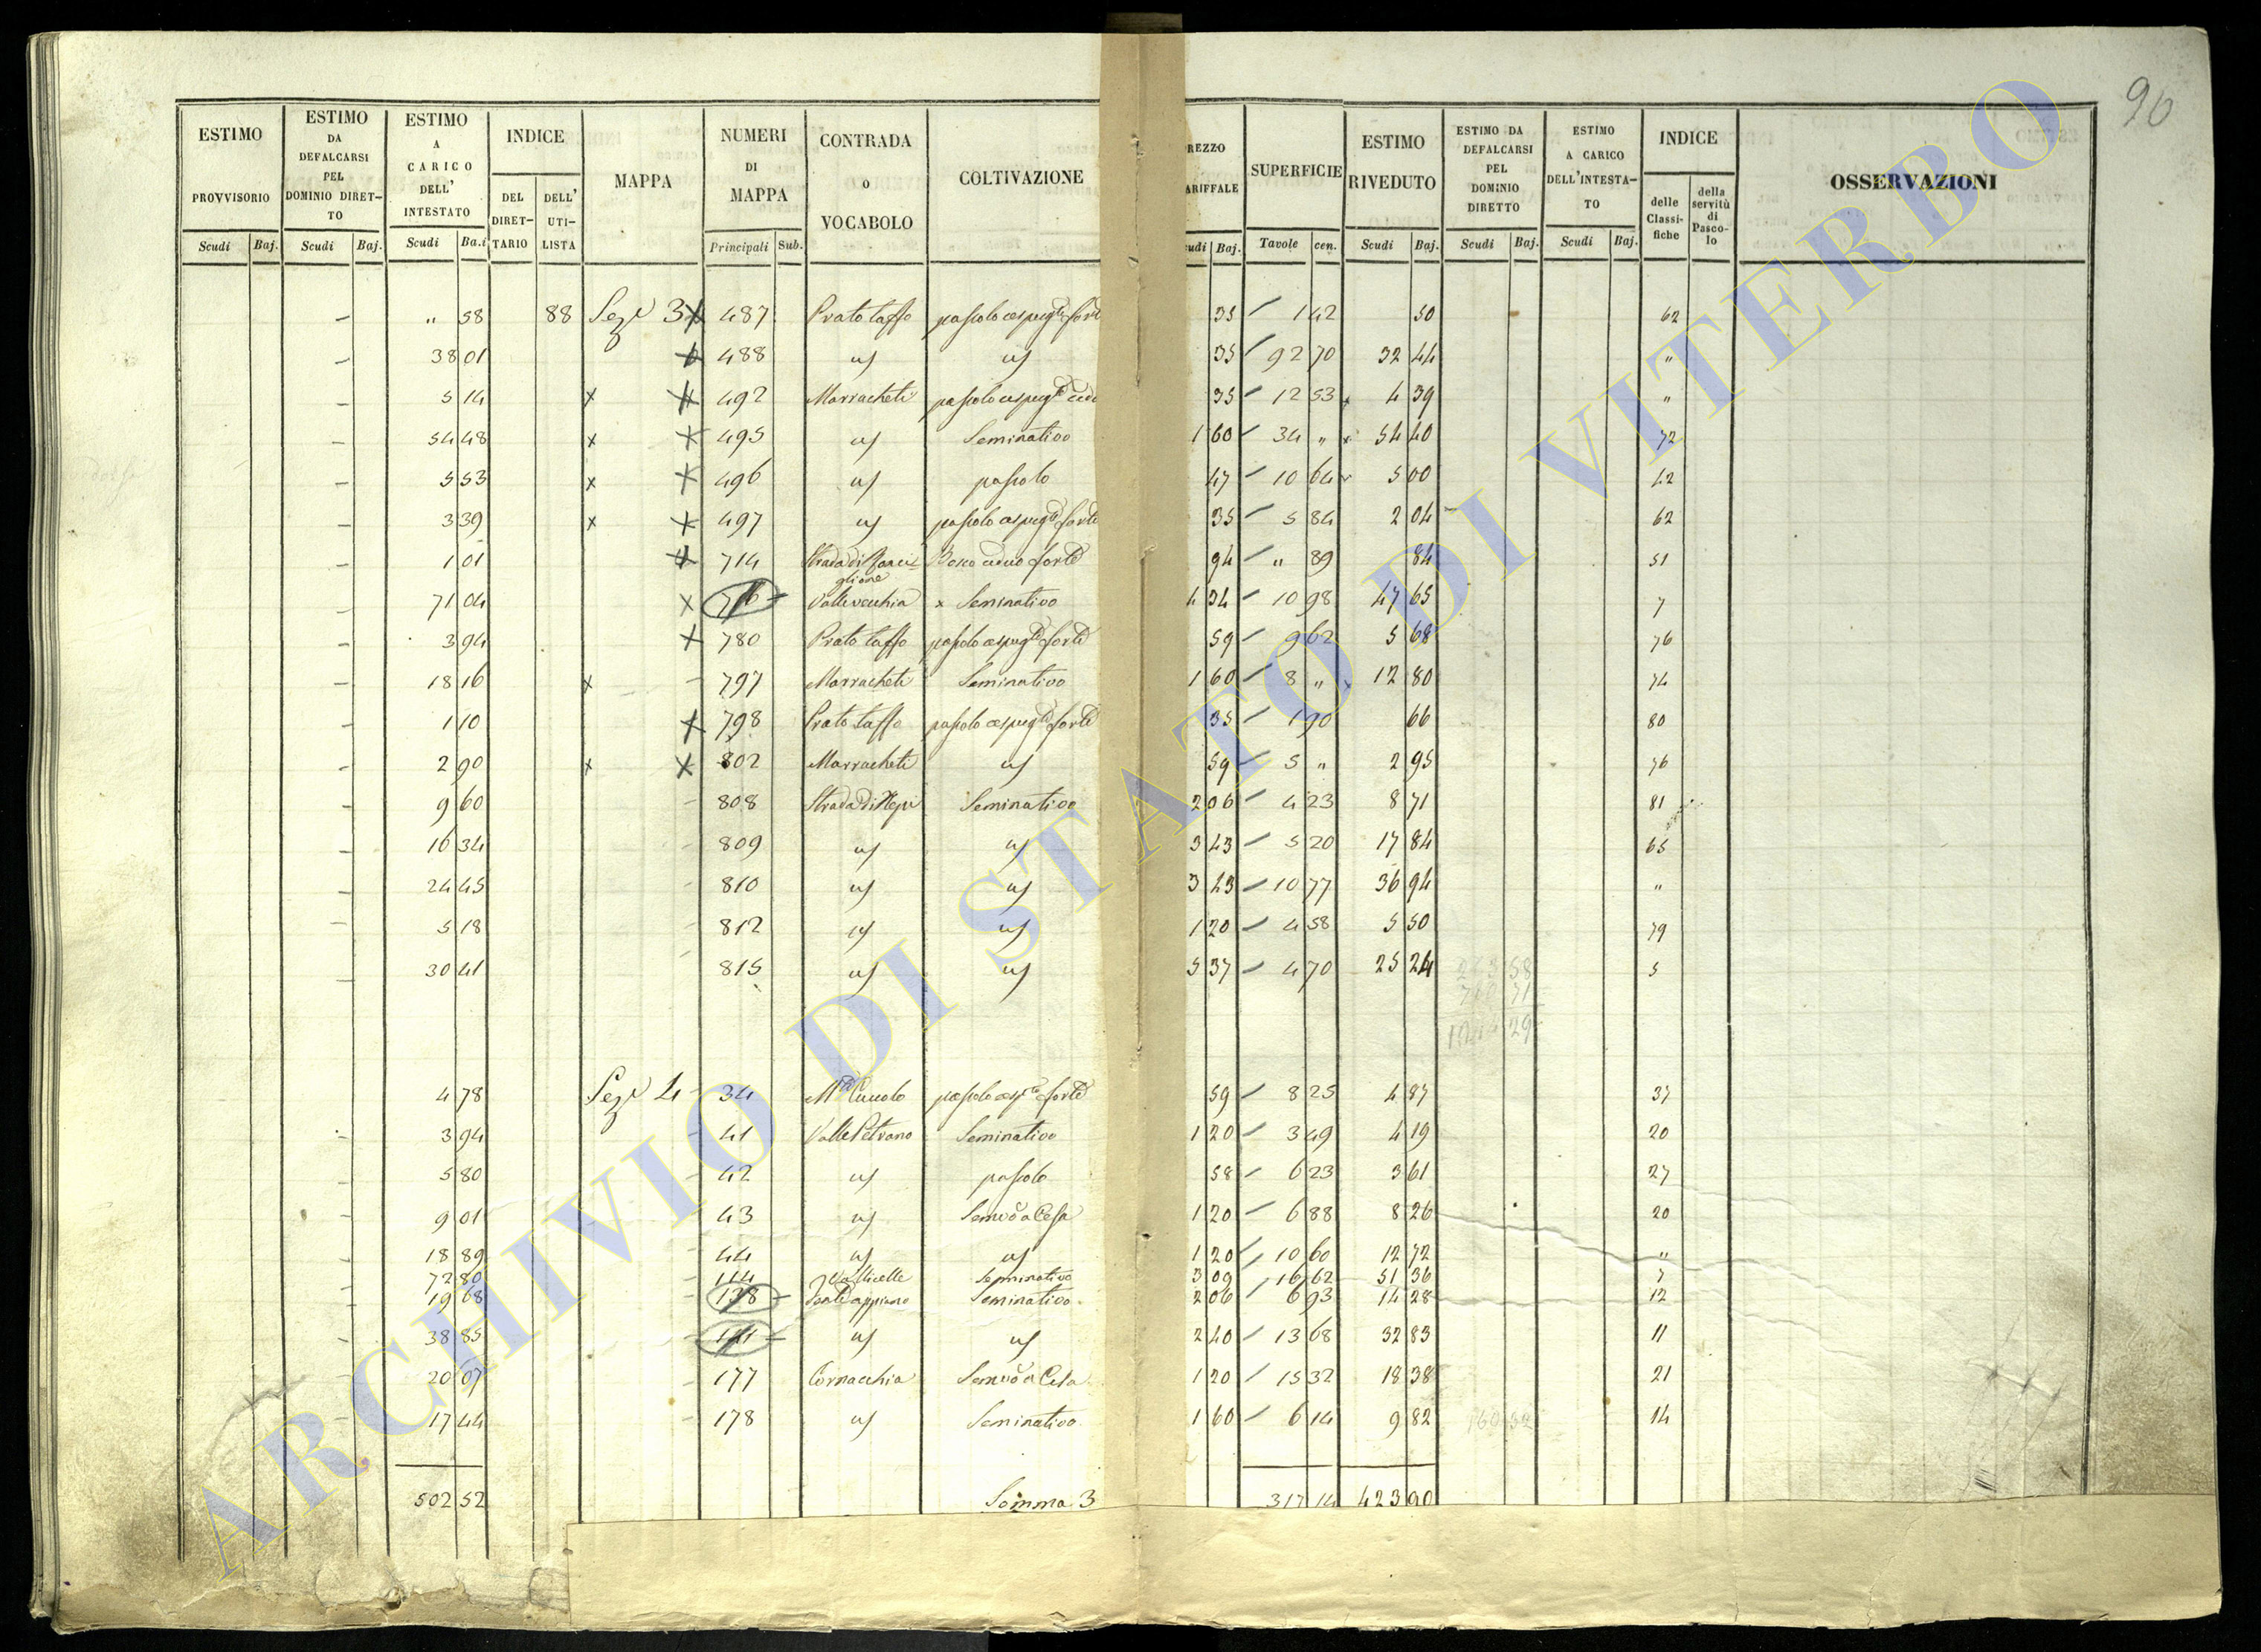 90
ESTIMO PROVVISORIO Scudi Baj.
ESTIMO DA DEFALCARSI PEL DOMINIO DIRET-TO Scudi Baj.
ESTIMO A CARICO DELL' INTESTATO Scudi Ba.i
INDICE DEL DIRET-TARIO DELL' UTI-LISTA
MAPPA
NUMERI DI MAPPA Principali Sub.
CONTRADA o VOCABOLO
COLTIVAZIONE
REZZO ARIFFALE udi Baj.
SUPERFICIE Tavole cen.
ESTIMO RIVEDUTO Scudi Baj.
ESTIMO DA DEFALCARSI PEL DOMINIO DIRETTO Scudi Baj.
ESTIMO A CARICO DELL'INTESTA-TO Scudi Baj.
INDICE delle Classi-fiche della servitù di Pasco-lo
OSSERVAZIONI
– " 58 88 Sez. 3 487 Prato lasso 35 – 1 42 50 62
– 38 01 488 " " 35 – 92 70 32 44 "
– 5 14 x 492 Marracheti 35 – 12 53 4 39 "
– 54 48 x x 495 " Seminativo 1 60 – 34 " x 54 40 72
– 5 53 x x 496 " pascolo 47 – 10 64 5 00 42
– 3 39 x x 497 " 35 – 5 84 2 04 62
– 1 01 714 Strada di Ronciglione Bosco ceduo forte 94 – " 89 84 51
– 71 04 x Valle vecchia x Seminativo 4 34 – 10 98 47 65 7
– 3 94 x 780 Prato lasso 59 – 9 62 5 68 76
– 18 16 x – 797 Marracheti Seminativo 1 60 – 8 " 12 80 74
– 1 10 x 798 Prato lasso 35 – 1 90 66 80
– 2 90 x x 802 Marracheti " 59 – 5 " 2 95 76
– 9 60 – 808 Strada di Nepi Seminativo 2 06 – 4 23 8 71 81
– 16 34 – 809 " " 3 43 – 5 20 17 84 65
– 24 45 – 810 " " 3 43 – 10 77 36 94 "
– 5 18 – 812 " " 1 20 – 4 58 5 50 79
– 30 41 – 815 " " 5 37 – 4 70 25 24 5
– 4 78 Sez. 4 – 34 59 – 8 25 4 87 37
– 3 94 – 41 Valle Petrano Seminativo 1 20 – 3 49 4 19 20
– 5 80 – 42 " pascolo 58 – 6 23 3 61 27
– 9 01 – 43 " Semvo a Cesa 1 20 – 6 88 8 26 20
– 18 89 – 44 " " 1 20 – 10 60 12 72 "
– 72 80 – 114 Vallicelle Seminativo 3 09 – 16 62 51 36 7
– 19 68 138 – Seminativo 2 06 – 6 93 14 28 12
– 38 85 – 141 – " " 2 40 – 13 68 32 83 11
– 20 07 – 177 Cornacchia Semvo a Cesa 1 20 – 15 32 18 38 21
– 17 44 – 178 " Seminativo 1 60 – 6 14 9 82 14
502 52 Somma 3 317 14 423 90
ARCHIVIO DI STATO DI VITERBO